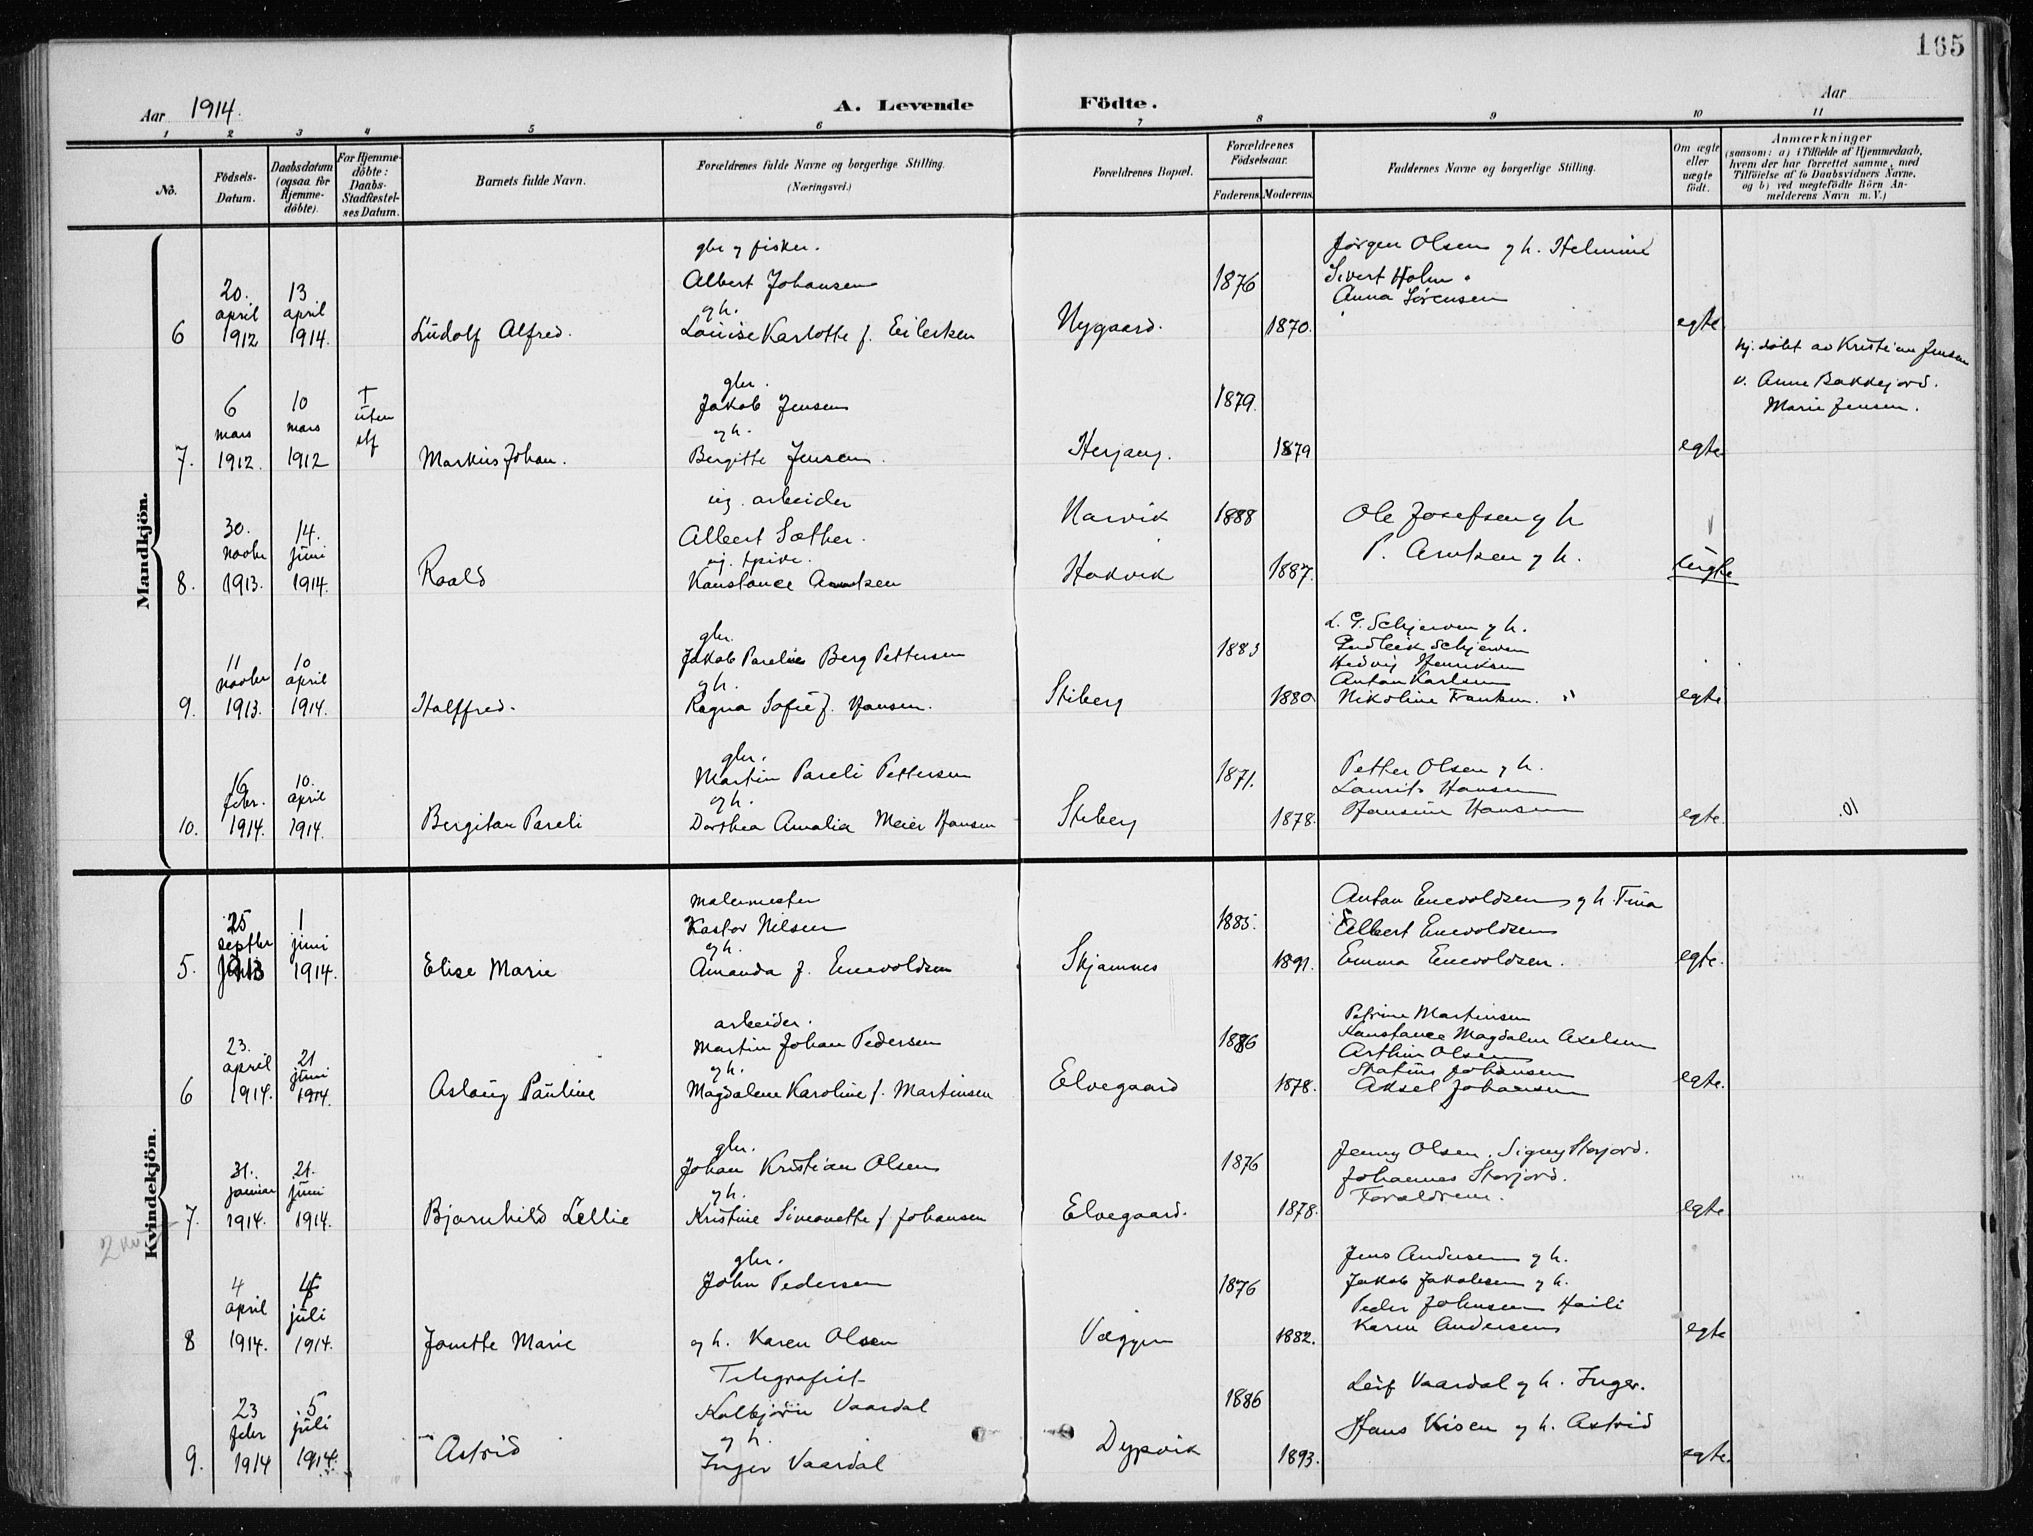 165
Aar 1914.
A. Levende Födte.
Aar
1 2 3 4 5 6 7 8 9 10 11
No.
Födsels-Datum.
Daabsdatum (ogsaa for Hjemme-döbte).
For Hjemme-döbte: Daabs-Stadfæstel-ses Datum.
Barnets fulde Navn.
Forældrenes fulde Navne og borgerlige Stilling.
(Næringsvei.)
Forældrenes Bopæl.
Forældrenes Födselsaar.
Faderens. Moderens.
Faddernes Navne og borgerlige Stilling.
Om ægte eller uægte födt.
Anmærkninger
(saasom: a) i Tilfælde af Hjemmedaab,
hvem der har forrettet samme, med
Tilföielse af to Daabsvidners Navne,
og b) ved uægtefödte Börn An-
melderens Navn m. V.)
Mandkjön.
6
20. april 1912
13 april 1914.
Ludolf Alfred.
gbr og fisker.
Albert Johansen
og h.
Louise Karlotte f. Eilertsen
Nygaard.
1876
1870.
Jørgen Olsen og h. Helmine
Sivert Holm.
Anna Sørensen
egte.
7.
6 mars 1912.
10 mars 1912
† uten stf
Markus Johan.
gbr.
Jakob Jensen
og h.
Bergitte Jensen.
Herjang.
1879.
1879
egte
hj. døbt av Kristian Jensen
v. Anne Bakkejord.
Marie Jensen.
8.
30. novbr 1913.
14. juni 1914.
Roald
ug. arbeider
Albert Sæther.
ug. tpike.
Konstance Arntsen
Narvik
Hakvik
1888
1887.
Ole Josefsen og h
P. Arntsen og h.
uegte
9.
11 novbr 1913.
10 april 1914.
Halffred.
gbr.
Jakob Parelius Berg Pettersen
og h.
Ragna Sofie f. Hansen.
Stiberg
1883
1880.
L. G. Schjerven og h.
Gudleik Schjerven
Hedvig Henriksen
Anton Karlsen
Nikoline Frantsen.
egte
10.
16 febr. 1914.
10. april 1914.
Bergiton Pareli
gbr.
Martin Pareli Pettersen
og h.
Dorthea Amalia Meier Hansen
Stiberg
1871.
1878.
Petter Olsen og h.
Laurits Hansen
Hansine Hansen
egte.
Kvindekjön.
5.
25 septbr 1913
1 juni 1914.
Elise Marie
malermester
Kastor Nilsen
og h.
Amanda f. Enevoldsen
Skjomnes
1885.
1891.
Anton Enevoldsen og h. Tina
Elbert Enevoldsen
Emma Enevoldsen.
egte.
6
23. april 1914.
21 juni 1914.
Aslaug Pauline
arbeider.
Martin Johan Pedersen
og h.
Magdalene Karoline f. Martinsen
Elvegaard
1886
1878.
Petrine Martinsen
Konstance Magdalene Axelsen
Arthur Olsen
Johansen
Aksel Johansen
egte.
7.
31. januar 1914.
21. juni 1914.
Bjørnhild Lellie
gbr.
Johan Kristian Olsen
og h.
Kristine Simonette f Johansen
Elvegaard.
1876
1878.
Jenny Olsen. Signy Storjord.
Johannes Storjord.
Forældrene.
egte
8
4 april 1914.
juli 1914.
Jonette Marie
gbr.
John Pedersen
og h. Karen Olsen
Væggen
1876
1882.
Jens Andersen og h.
Jakob Jakobsen og h.
Peder Johnsen
Karen Andersen
egte
9.
23 febr 1914
5 juli 1914.
Astrid
Telegrafist
Kolbjørn Vaardal
og h.
Inger Vaardal
Dypvik
1886
1893.
Leif Vaardal og h. Inger.
Hans og h. Astrid
egte.